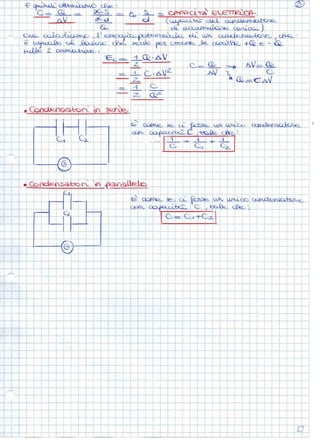 E quindi otteniamo che:
C = Q/ΔV = = ε₀ S/d = CAPACITÀ ELETTRICA
(capacità del condensatore
di accumulare carica)
Ora calcoliamo l'energia potenziale di un condensatore, che
è uguale al lavoro che serve per creare le cariche +Q e -Q
sulle 2 armature:
Ec = 1/2 Q·ΔV C = Q/ΔV → ΔV = Q/C
= 1/2 C·ΔV² Q = CΔV
= 1/2 C/Q²
• Condensatori in serie
È come se ci fosse un unico condensatore
con capacità C tale che:
1/C = 1/C₁ + 1/C₂
C₁ C₂
G
• Condensatori in parallelo
È come se ci fosse un unico condensatore
con capacità C, tale che:
C = C₁ + C₂
C₁
C₂
G